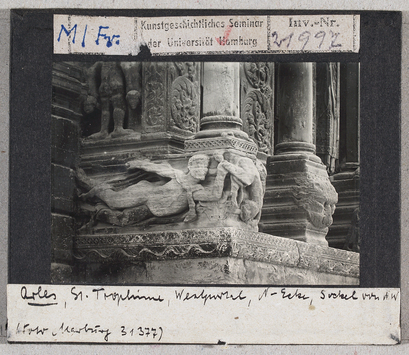 M/Fr.
Kunstgeschichtliches Seminar
der Universität Hamburg
Inv.-Nr.
21997
Arles, St. Trophime, Westportal, N-Ecke, Sockel von NW
(Foto Marburg 31377)